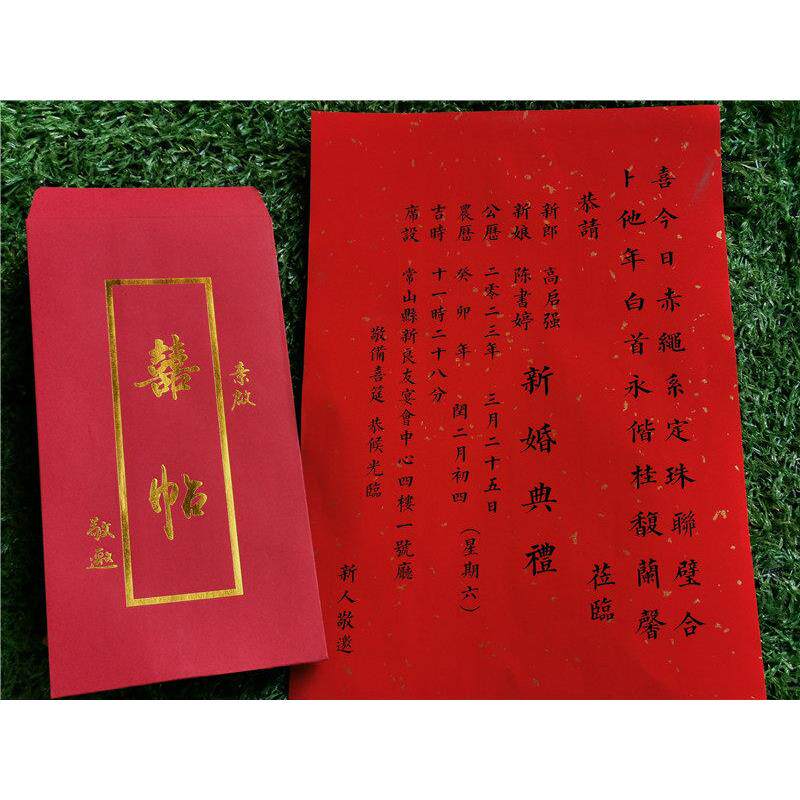 喜今日赤繩系定珠聯璧合
卜他年白首永偕桂馥蘭馨
恭請 莅臨
新郎 高启强
新娘 陈書婷
新婚典禮
公曆 二零二三年 三月二十五日
農曆 癸卯年 閏二月初四（星期六）
吉時 十一時二十八分
席設 常山縣新良友宴會中心四樓一號廳
敬備喜筵 恭候光臨
新人敬邀
亲啟
囍帖
敬邀